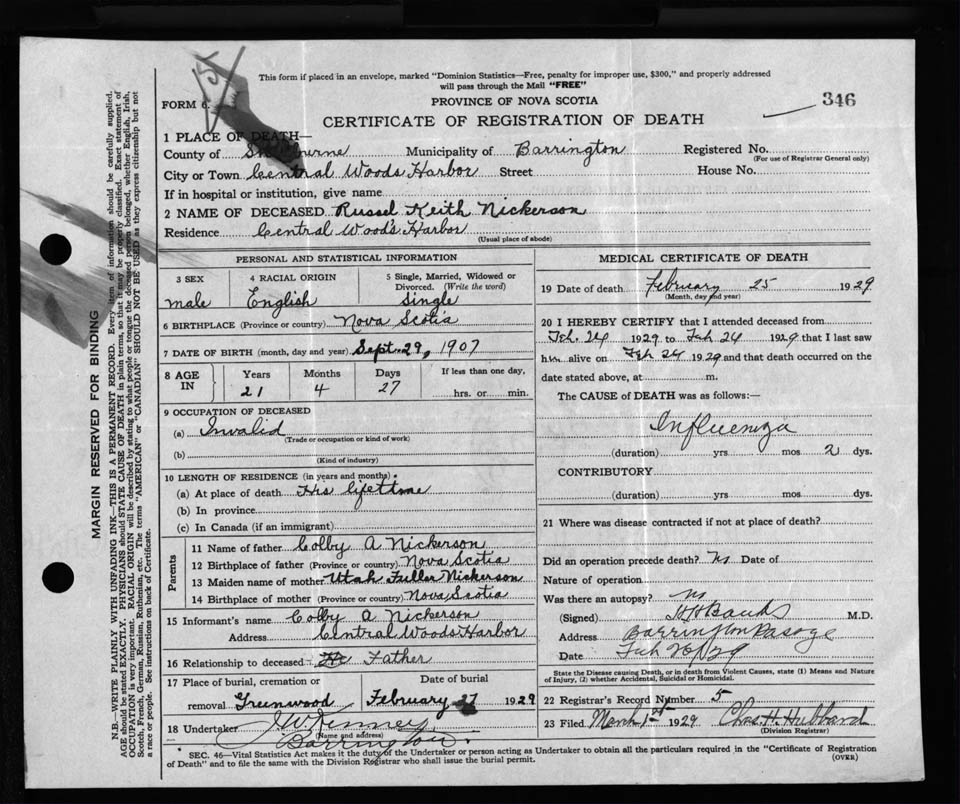 This form if placed in an envelope, marked "Dominion Statistics—Free, penalty for improper use, $300," and properly addressed
will pass through the Mail "FREE"
FORM 6.
PROVINCE OF NOVA SCOTIA
346
CERTIFICATE OF REGISTRATION OF DEATH
1 PLACE OF DEATH—
County of Shelburne Municipality of Barrington Registered No.
(For use of Registrar General only)
City or Town Central Woods Harbor Street House No.
If in hospital or institution, give name
2 NAME OF DECEASED Russel Keith Nickerson
Residence Central Woods Harbor
(Usual place of abode)
PERSONAL AND STATISTICAL INFORMATION
3 SEX 4 RACIAL ORIGIN 5 Single, Married, Widowed or
Divorced. (Write the word)
male English Single
6 BIRTHPLACE (Province or country) Nova Scotia
7 DATE OF BIRTH (month, day and year) Sept. 29, 1907
8 AGE IN Years Months Days If less than one day,
21 4 27 hrs. or min.
9 OCCUPATION OF DECEASED
(a) Invalid
(Trade or occupation or kind of work)
(b)
(Kind of industry)
10 LENGTH OF RESIDENCE (in years and months).
(a) At place of death His lifetime
(b) In province
(c) In Canada (if an immigrant)
Parents
11 Name of father Colby A Nickerson
12 Birthplace of father (Province or country) Nova Scotia
13 Maiden name of mother Utah Fuller Nickerson
14 Birthplace of mother (Province or country) Nova Scotia
15 Informant's name Colby A Nickerson
Address Central Woods Harbor
16 Relationship to deceased Father
17 Place of burial, cremation or Date of burial
removal Greenwood February 27 1929
18 Undertaker J.W. Kenney
(Name and address)
Barrington.
MEDICAL CERTIFICATE OF DEATH
19 Date of death February 25 1929
(Month, day and year)
20 I HEREBY CERTIFY that I attended deceased from
Feb. 24 1929 to Feb 24 1929 that I last saw
him alive on Feb 24 1929 and that death occurred on the
date stated above, at m.
The CAUSE of DEATH was as follows:—
Influenza
(duration) yrs mos 2 dys.
CONTRIBUTORY
(duration) yrs mos dys.
21 Where was disease contracted if not at place of death?
Did an operation precede death? no Date of
Nature of operation
Was there an autopsy? no
(Signed) Banks M.D.
Address Barrington Passage
Date Feb 26/29
State the Disease causing Death, or in death from Violent Causes, state (1) Means and Nature
of Injury, (2) whether Accidental, Suicidal or Homicidal.
22 Registrar's Record Number 5
23 Filed March 1st 1929 Chas. H. Hubbard
(Division Registrar)
SEC. 46—Vital Statistics Act makes it the duty of the Undertaker or person acting as Undertaker to obtain all the particulars required in the "Certificate of Registration
of Death" and to file the same with the Division Registrar who shall issue the burial permit.
(OVER)
MARGIN RESERVED FOR BINDING
N.B.—WRITE PLAINLY WITH UNFADING INK—THIS IS A PERMANENT RECORD. Every item of information should be carefully supplied.
AGE should be stated EXACTLY. PHYSICIANS should STATE CAUSE OF DEATH in plain terms, so that it may be properly classified. Exact statement of
OCCUPATION is very important. RACIAL ORIGIN will be described by stating to what people or tongue the deceased person belonged, whether English, Irish,
Scotch, French, German, Russian, Ruthenian, etc. The terms "AMERICAN" or "CANADIAN" SHOULD NOT BE USED as they express citizenship but not
a race or people. See instructions on back of Certificate.